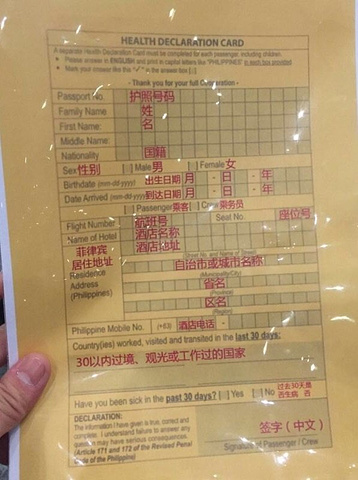 HEALTH DECLARATION CARD
A separate Health Declaration Card must be completed for each passenger, including children.
Please answer in ENGLISH and print in capital letters like "PHILIPPINES" in each box provided.
Mark your answer like this "✓" in the answer box [ ]
- Thank you for your full Cooperation -
Passport No. 护照号码
Family Name 姓
First Name: 名
Middle Name:
Nationality 国籍
Sex 性别 [ ] Male 男 [ ] Female 女
Birthdate (mm-dd-yyyy) 出生日期 月 - 日 - 年
Date Arrived (mm-dd-yyyy) 到达日期 月 - 日 - 年
[ ] Passenger 乘客 [ ] Crew 乘务员
Flight Number 航班号 Seat No. 座位号
Name of Hotel 酒店名称
菲律宾 酒店地址
居住地址
Residence 自治市或城市名称
(Municipality/City)
Address 省名
(Philippines) (Province)
区名
(Region)
Philippine Mobile No. (+63) 酒店电话 -
Country(ies) worked, visited and transited in the last 30 days:
30以内过境、观光或工作过的国家
Have you been sick in the past 30 days? [ ] Yes [ ] No 过去30天是
否生病 否
DECLARATION:
The information I have given is true, correct and
complete. I understand failure to answer any
question may have serious consequences.
(Article 171 and 172 of the Revised Penal
Code of the Philippines)
签字（中文）
Signature of Passenger / Crew